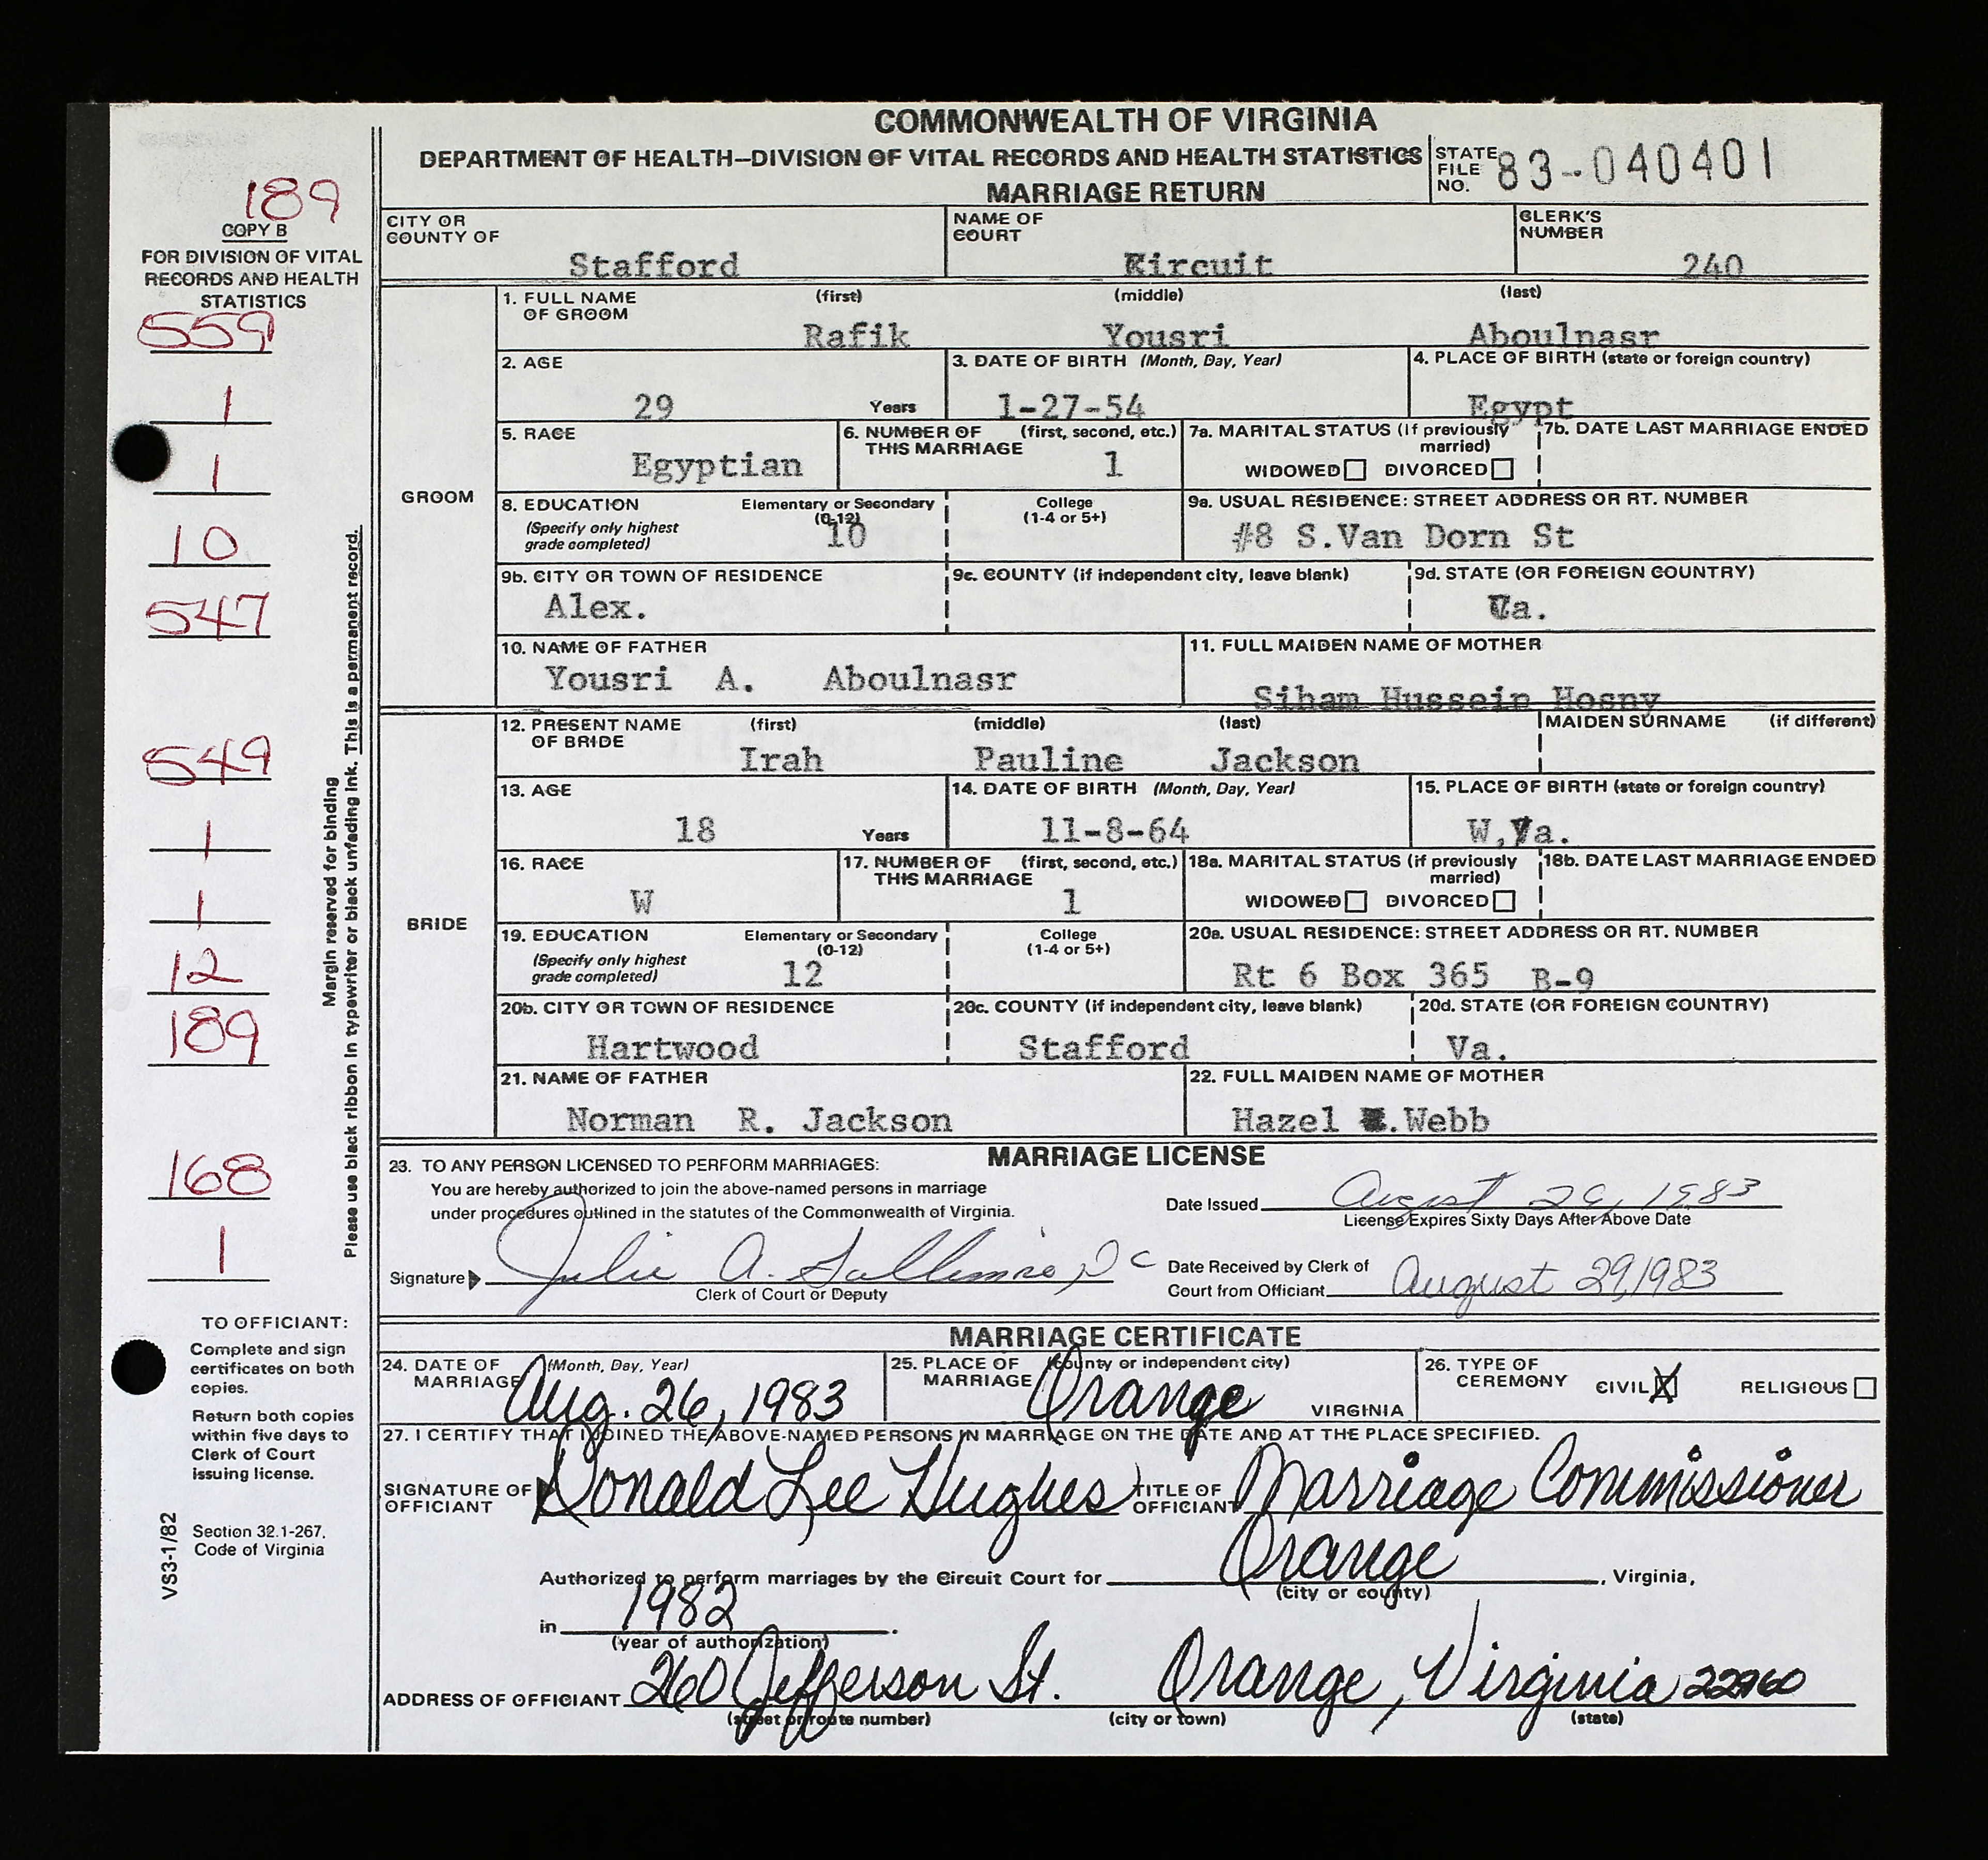 COMMONWEALTH OF VIRGINIA
DEPARTMENT OF HEALTH—DIVISION OF VITAL RECORDS AND HEALTH STATISTICS
MARRIAGE RETURN
STATE FILE NO. 83-040401
189
COPY B
FOR DIVISION OF VITAL
RECORDS AND HEALTH
STATISTICS
559
1
1
10
547
549
1
1
12
189
168
1
Margin reserved for binding
Please use black ribbon in typewriter or black unfading ink. This is a permanent record.
TO OFFICIANT:
Complete and sign
certificates on both
copies.
Return both copies
within five days to
Clerk of Court
issuing license.
Section 32.1-267,
Code of Virginia
VS3-1/82
CITY OR COUNTY OF Stafford
NAME OF COURT Circuit
CLERK'S NUMBER 240
GROOM
1. FULL NAME OF GROOM (first) (middle) (last)
Rafik Yousri Aboulnasr
2. AGE 29 Years
3. DATE OF BIRTH (Month, Day, Year) 1-27-54
4. PLACE OF BIRTH (state or foreign country) Egypt
5. RACE Egyptian
6. NUMBER OF THIS MARRIAGE (first, second, etc.) 1
7a. MARITAL STATUS (If previously married) WIDOWED DIVORCED
7b. DATE LAST MARRIAGE ENDED
8. EDUCATION (Specify only highest grade completed) Elementary or Secondary (0-12) 10
College (1-4 or 5+)
9a. USUAL RESIDENCE: STREET ADDRESS OR RT. NUMBER
#8 S.Van Dorn St
9b. CITY OR TOWN OF RESIDENCE Alex.
9c. COUNTY (if independent city, leave blank)
9d. STATE (OR FOREIGN COUNTRY) Va.
10. NAME OF FATHER
Yousri A. Aboulnasr
11. FULL MAIDEN NAME OF MOTHER
Siham Hussein Hosny
BRIDE
12. PRESENT NAME OF BRIDE (first) (middle) (last)
Irah Pauline Jackson
MAIDEN SURNAME (if different)
13. AGE 18 Years
14. DATE OF BIRTH (Month, Day, Year) 11-8-64
15. PLACE OF BIRTH (state or foreign country) W,Va.
16. RACE W
17. NUMBER OF THIS MARRIAGE (first, second, etc.) 1
18a. MARITAL STATUS (if previously married) WIDOWED DIVORCED
18b. DATE LAST MARRIAGE ENDED
19. EDUCATION (Specify only highest grade completed) Elementary or Secondary (0-12) 12
College (1-4 or 5+)
20a. USUAL RESIDENCE: STREET ADDRESS OR RT. NUMBER
Rt 6 Box 365 B-9
20b. CITY OR TOWN OF RESIDENCE Hartwood
20c. COUNTY (if independent city, leave blank) Stafford
20d. STATE (OR FOREIGN COUNTRY) Va.
21. NAME OF FATHER
Norman R. Jackson
22. FULL MAIDEN NAME OF MOTHER
Hazel .Webb
MARRIAGE LICENSE
23. TO ANY PERSON LICENSED TO PERFORM MARRIAGES:
You are hereby authorized to join the above-named persons in marriage
under procedures outlined in the statutes of the Commonwealth of Virginia.
Date Issued August 26, 1983
License Expires Sixty Days After Above Date
Signature Julie A. DC
Clerk of Court or Deputy
Date Received by Clerk of
Court from Officiant August 29, 1983
MARRIAGE CERTIFICATE
24. DATE OF MARRIAGE (Month, Day, Year) Aug. 26, 1983
25. PLACE OF MARRIAGE (county or independent city) Orange VIRGINIA
26. TYPE OF CEREMONY CIVIL X RELIGIOUS
27. I CERTIFY THAT I JOINED THE ABOVE-NAMED PERSONS IN MARRIAGE ON THE DATE AND AT THE PLACE SPECIFIED.
SIGNATURE OF OFFICIANT Donald Lee Hughes TITLE OF OFFICIANT Marriage Commissioner
Authorized to perform marriages by the Circuit Court for Orange, Virginia,
(city or county)
in 1982.
(year of authorization)
ADDRESS OF OFFICIANT 260 Jefferson St. Orange, Virginia 22960
(street or route number) (city or town) (state)